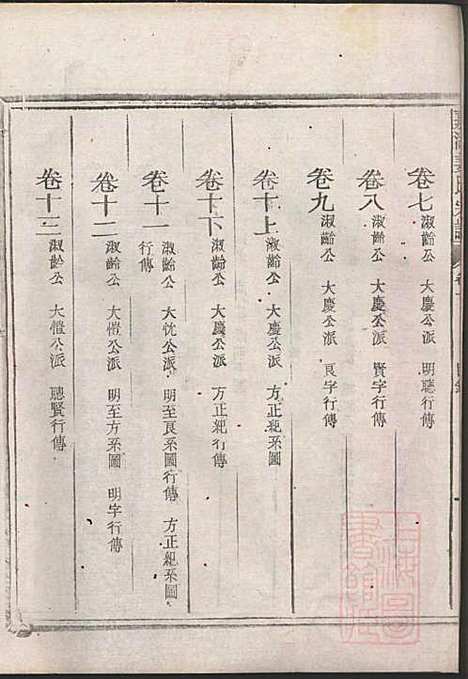 卷七 淑齡公 大慶公派 明聽行傳
卷八 淑齡公 大慶公派 賢字行傳
卷九 淑齡公 大慶公派 良字行傳
卷十上 淑齡公 大慶公派 方正紀系圖
卷十下 淑齡公 大慶公派 方正紀行傳
卷十一 淑齡公 大忱公派 明至良系圖行傳 方正紀系圖
行傳
卷十二 淑齡公 大愷公派 明至方系圖 明字行傳
卷十三 淑齡公 大愷公派 聽賢行傳